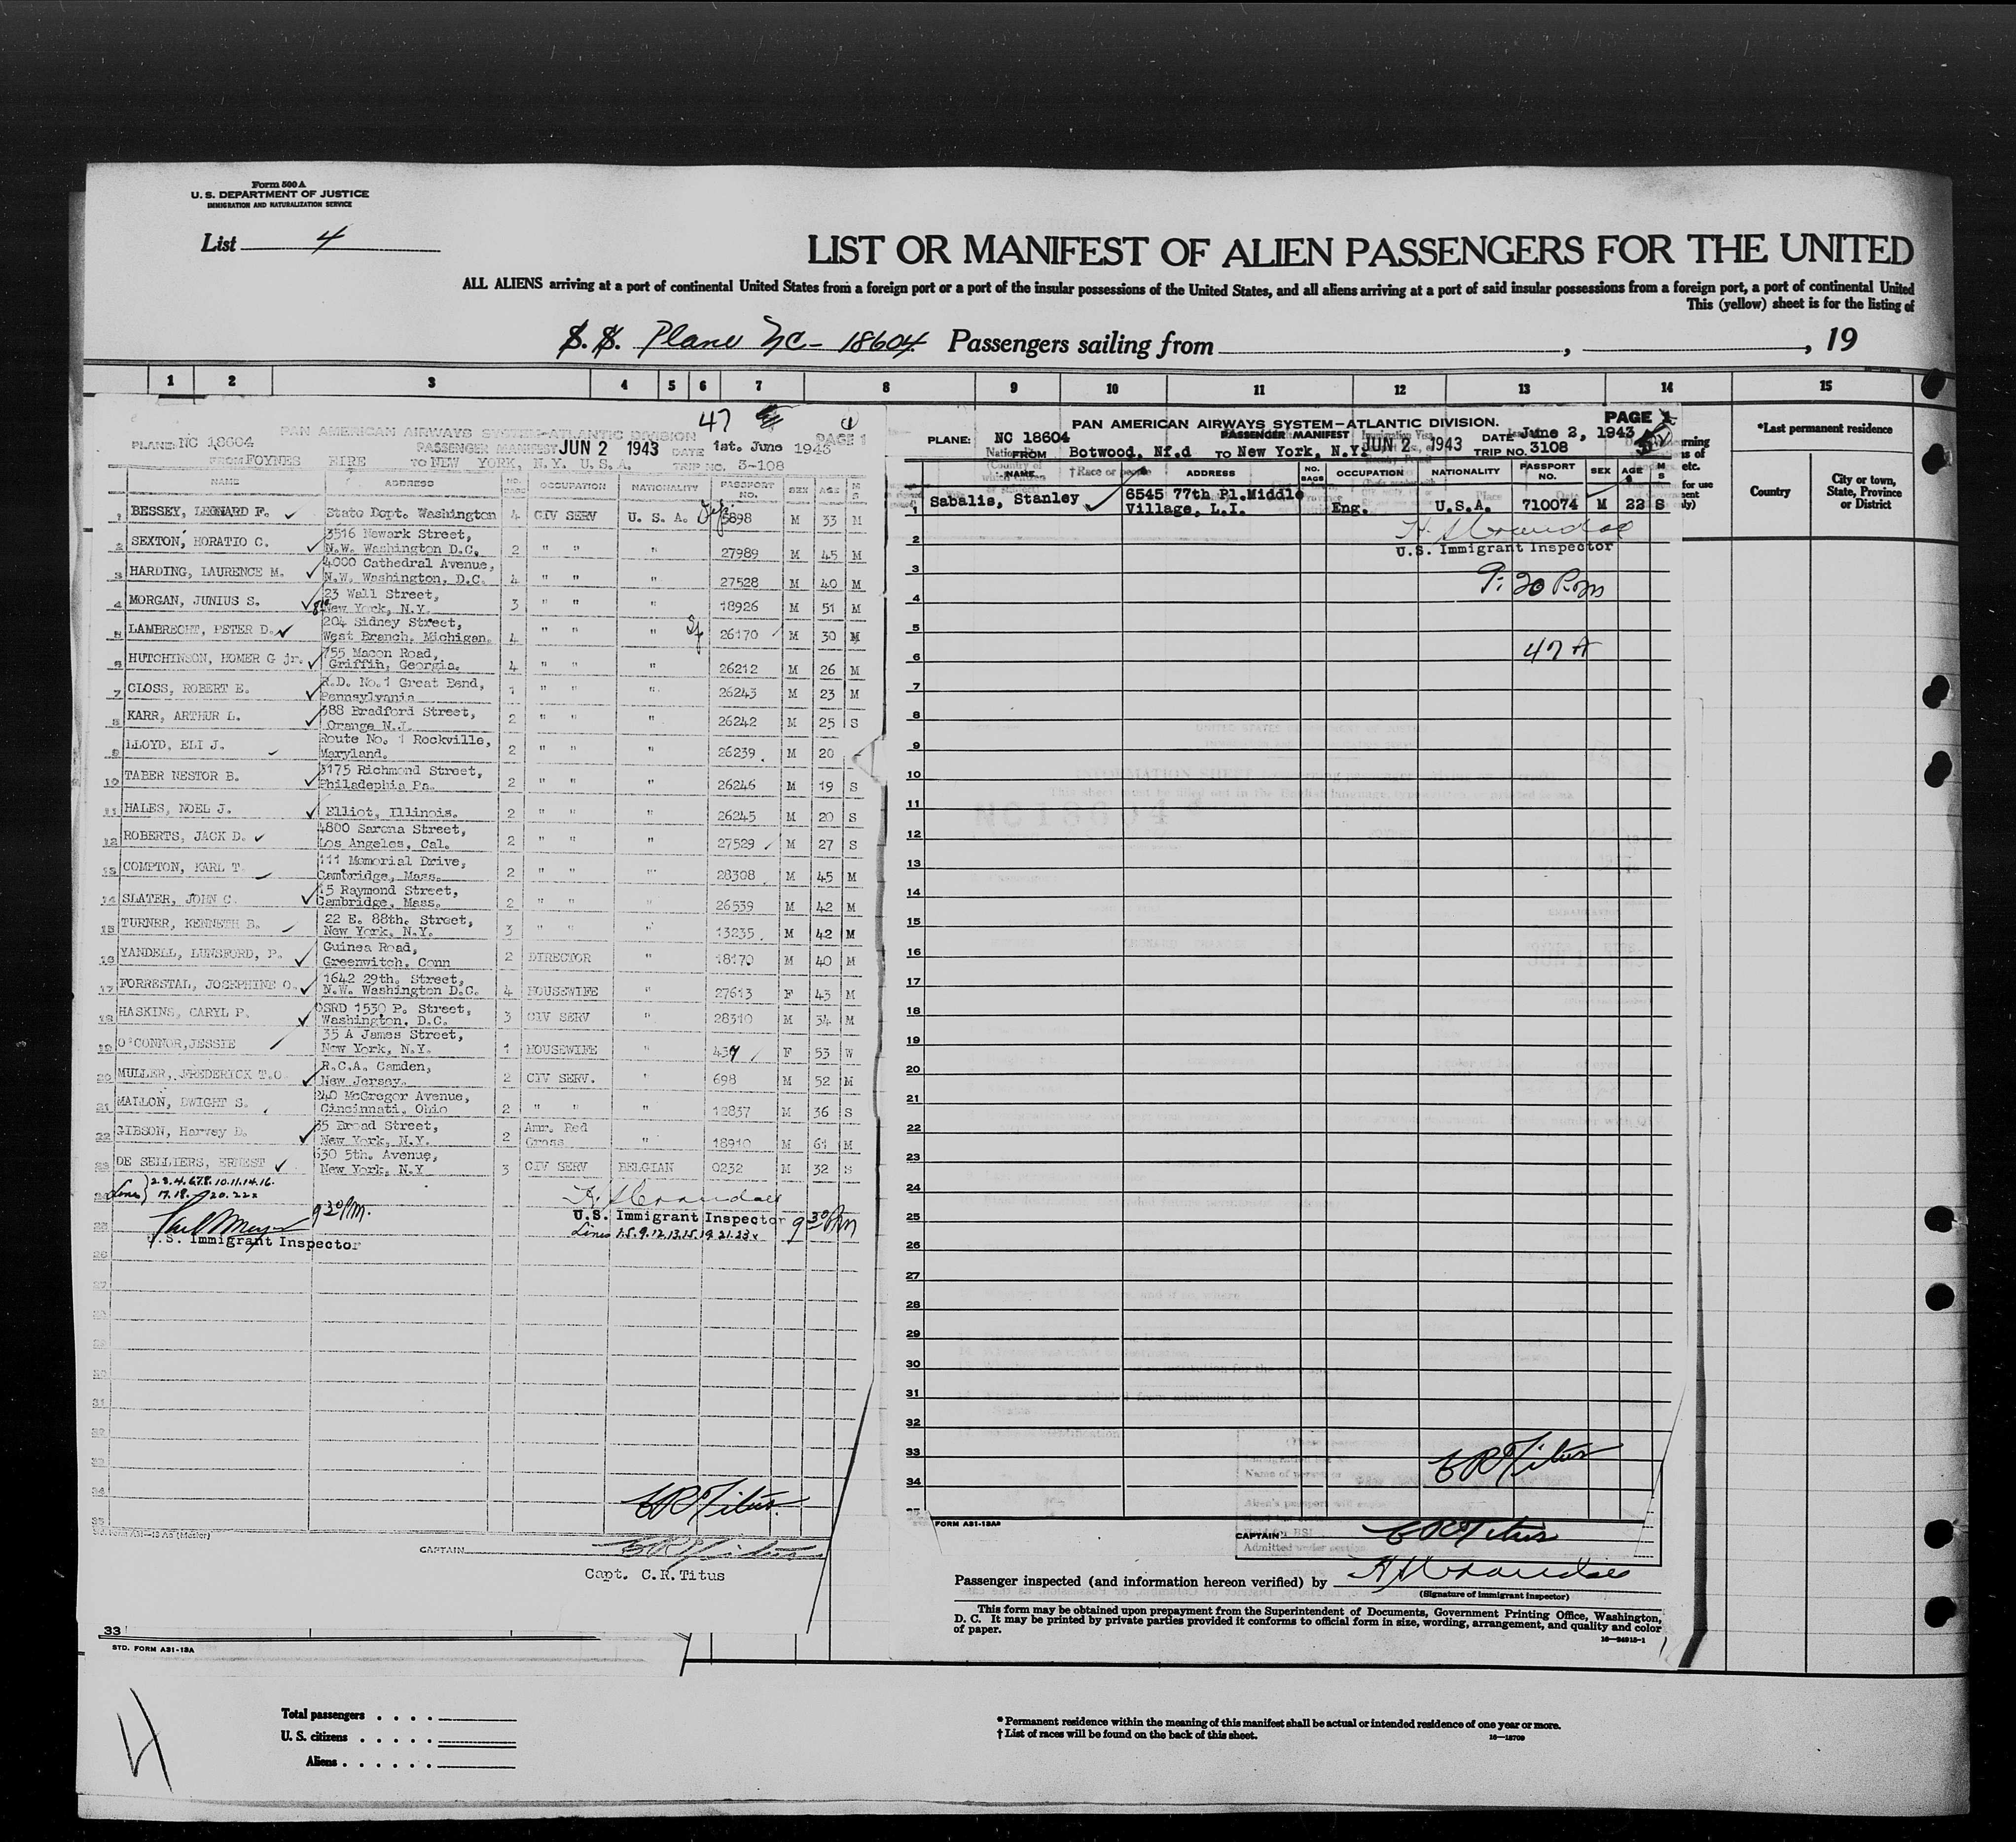 Form 500 A
U. S. DEPARTMENT OF JUSTICE
IMMIGRATION AND NATURALIZATION SERVICE
List 4
LIST OR MANIFEST OF ALIEN PASSENGERS FOR THE UNITED
ALL ALIENS arriving at a port of continental United States from a foreign port or a port of the insular possessions of the United States, and all aliens arriving at a port of said insular possessions from a foreign port, a port of continental United
This (yellow) sheet is for the listing of
S. S. Plane NC-18604 Passengers sailing from , , 19
1 2 3 4 5 6 7 8 9 10 11 12 13 14 15
47
PAN AMERICAN AIRWAYS SYSTEM-ATLANTIC DIVISION PAGE 1
PLANE: NC 18604 PASSENGER MANIFEST JUN 2 1943 DATE 1st. June 1943
FROM FOYNES EIRE TO NEW YORK, N.Y. U.S.A. TRIP NO. 3-108
NAME ADDRESS NO. BAGS OCCUPATION NATIONALITY PASSPORT NO. SEX AGE M S
1 BESSEY, LEONARD F. State Dept. Washington 4 CIV SERV U. S. A. 5898 M 33 M
2 SEXTON, HORATIO C. 3516 Newark Street, N.W. Washington D.C. 2 " " " 27989 M 45 M
3 HARDING, LAURENCE M. 4000 Cathedral Avenue, N.W. Washington, D.C. 4 " " " 27528 M 40 M
4 MORGAN, JUNIUS S. 23 Wall Street, New York, N.Y. 3 " " " 18926 M 51 M
5 LAMBRECHT, PETER D. 204 Sidney Street, West Branch, Michigan. 4 " " " 26170 M 30 M
6 HUTCHINSON, HOMER G jr. 755 Macon Road, Griffin, Georgia. 4 " " " 26212 M 26 M
7 CLOSS, ROBERT E. R.D. No.1 Great Bend, Pennsylvania 1 " " " 26243 M 23 M
8 KARR, ARTHUR L. 388 Bradford Street, Orange N.J. 2 " " " 26242 M 25 S
9 LLOYD, ELI J. Route No. 1 Rockville, Maryland. 2 " " " 26239 M 20
10 TABER NESTOR B. 3175 Richmond Street, Philadephia Pa. 2 " " " 26246 M 19 S
11 HALES, NOEL J. Elliot, Illinois. 2 " " " 26245 M 20 S
12 ROBERTS, JACK D. 4800 Sarona Street, Los Angeles, Cal. 2 " " " 27529 M 27 S
13 COMPTON, KARL T. 111 Memorial Drive, Cambridge, Mass. 2 " " " 28308 M 45 M
14 SLATER, JOHN C. 15 Raymond Street, Cambridge, Mass. 2 " " " 26539 M 42 M
15 TURNER, KENNETH B. 22 E. 88th. Street, New York, N.Y. 3 " " " 13235 M 42 M
16 YANDELL, LUNSFORD, P. Guinea Road, Greenwitch, Conn 2 DIRECTOR " 18170 M 40 M
17 FORRESTAL, JOSEPHINE O. 1642 29th. Street, N.W. Washington D.C. 4 HOUSEWIFE " 27613 F 43 M
18 HASKINS, CARYL P. OSRD 1530 P. Street, Washington, D.C. 3 CIV SERV " 28310 M 34 M
19 O'CONNOR, JESSIE 35 A James Street, New York, N.Y. 1 HOUSEWIFE " 437 F 53 W
20 MULLER, FREDERICK T.O. R.C.A. Camden, New Jersey. 2 CIV SERV. " 698 M 52 M
21 MALLON, DWIGHT S. 240 McGregor Avenue, Cincinnati, Ohio 2 " " " 12837 M 36 S
22 GIBSON, Harvey D. 35 Broad Street, New York, N.Y. 2 Amr. Red Cross " 18910 M 61 M
23 DE SELLIERS, ERNEST 630 5th. Avenue, New York, N.Y 3 CIV SERV BELGIAN 0232 M 32 S
Lines 2.3.4.6.7.8.10.11.14.16.
17.18. 20.22x
9 30 P.m.
U.S. Immigrant Inspector
U.S. Immigrant Inspector 9 30 P.m
Lines 1.5.9.12.13.15.19.21.23x
C R Titus
CAPTAIN C R Titus
Capt. C.R.Titus
33
STD. FORM A31-13A
PAN AMERICAN AIRWAYS SYSTEM-ATLANTIC DIVISION. PAGE 1
PLANE: NC 18604 PASSENGER MANIFEST JUN 2 1943 DATE June 2, 1943
FROM Botwood, Nf.d TO New York, N.Y. TRIP NO. 3108
NAME ADDRESS NO. BAGS OCCUPATION NATIONALITY PASSPORT NO. SEX AGE M S
1 Saballs, Stanley 6545 77th Pl. Middle Village, L.I. Eng. U.S.A. 710074 M 22 S
U.S. Immigrant Inspector
9:20 P.m
47 A
2
3
4
5
6
7
8
9
10
11
12
13
14
15
16
17
18
19
20
21
22
23
24
25
26
27
28
29
30
31
32
33
34
C R Titus
FORM A31-13A
CAPTAIN C R Titus
Admitted under section
Passenger inspected (and information hereon verified) by
(Signature of Immigrant Inspector)
This form may be obtained upon prepayment from the Superintendent of Documents, Government Printing Office, Washington,
D. C. It may be printed by private parties provided it conforms to official form in size, wording, arrangement, and quality and color
of paper.
*Last permanent residence
Country
City or town, State, Province or District
4
Total passengers . . . .
U. S. citizens . . . . .
Aliens . . . . . .
* Permanent residence within the meaning of this manifest shall be actual or intended residence of one year or more.
† List of races will be found on the back of this sheet.